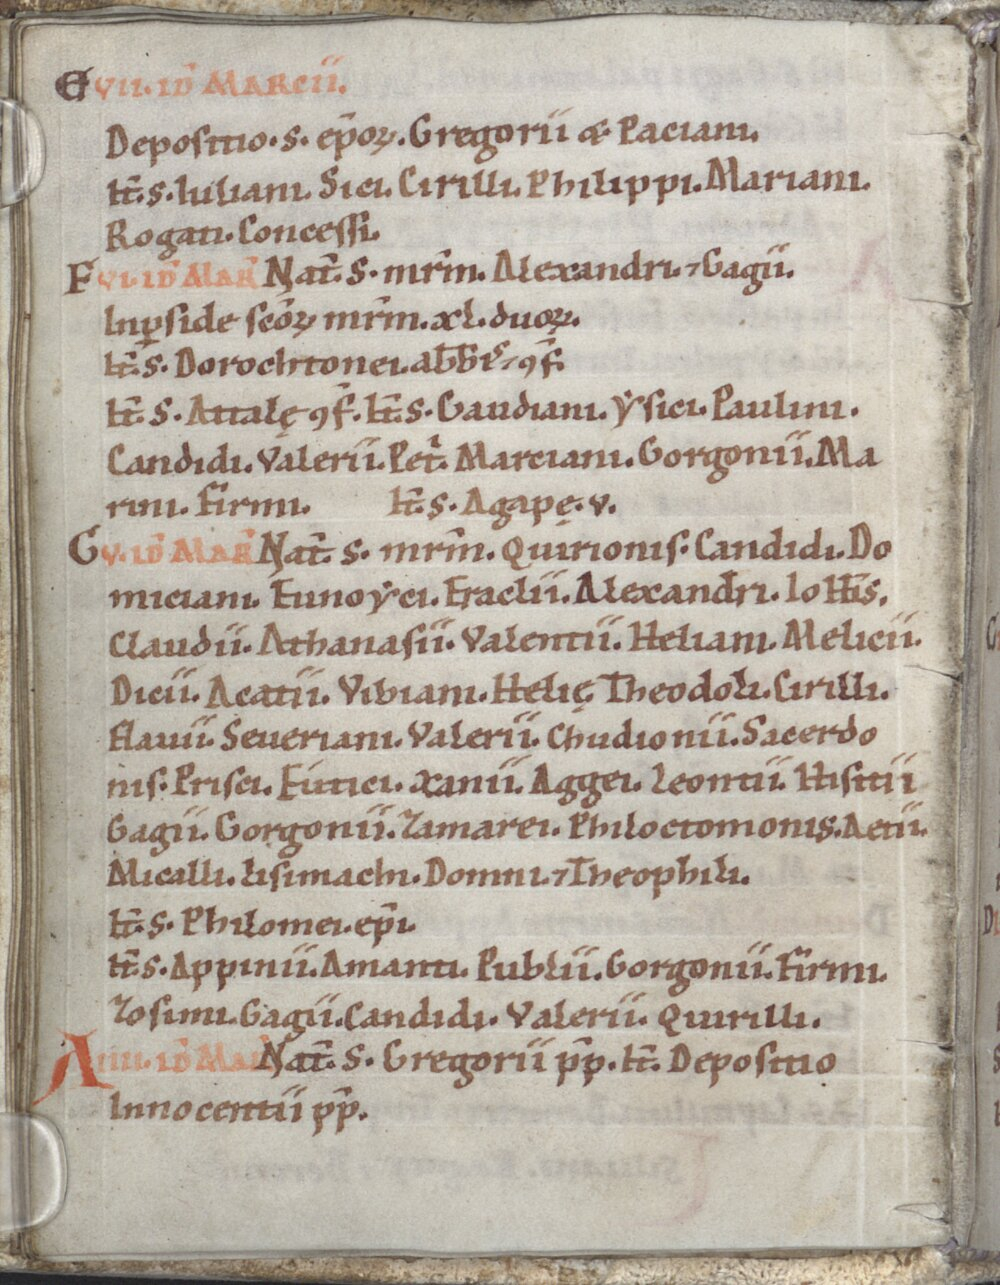 E VII. ID̅ MARCII.
Depositio. s. ep̅oꝝ. Gregorii & Paciani.
It̅. s. Iuliani. Sici. Cirilli. Philippi. Mariani.
Rogati. Concessi.
F VI. ID̅ MAR̅ Nat̅. S. mr̅m. Alexandri. ⁊ Gagii.
In ꝑside sc̅oꝝ mr̅m. xl. duoꝝ.
It̅. s. Dorochtonei. abb̅is ⁊ ꝯf̅.
It̅. S. Attalę ꝯf̅. It̅. s. Gaudiani. Ẏsici. Paulini.
Candidi. Valerii. Pet̅. Marciani. Gorgonii. Ma
rini. Firmi. It̅. s. Agapę. v.
G V. ID̅ MAR̅ Nat̅. S. mr̅m. Quirionis. Candidi. Do
miciani. Eunoẏci. Eraclii. Alexandri. Iohis̅.
Claudii. Athanasii. Valentii. Heliani. Melicii.
Dicii. Acatii. Vibiani. Helię. Theodoli. Cirilli.
Flavii. Seueriani. Valerii. Chudionii. Sacerdo
nis. Prisci. Eutici. Xanii. Aggei. Leontii. Histii
Gagii. Gorgonii. Zamarei. Philoctomonis. Aetii.
Micalli. Lisimachi. Domni. ⁊ Theophili.
It̅. S. Philomei. ep̅i.
It̅. s. Appinii. Amanti. Publii. Gorgonii. Firmi.
Zosimi. Gagii. Candidi. Valerii. Quirilli.
A IIII. ID̅ MAR̅ Nat̅. S. Gregorii pp̅. It̅. Depositio
Innocentii pp̅.